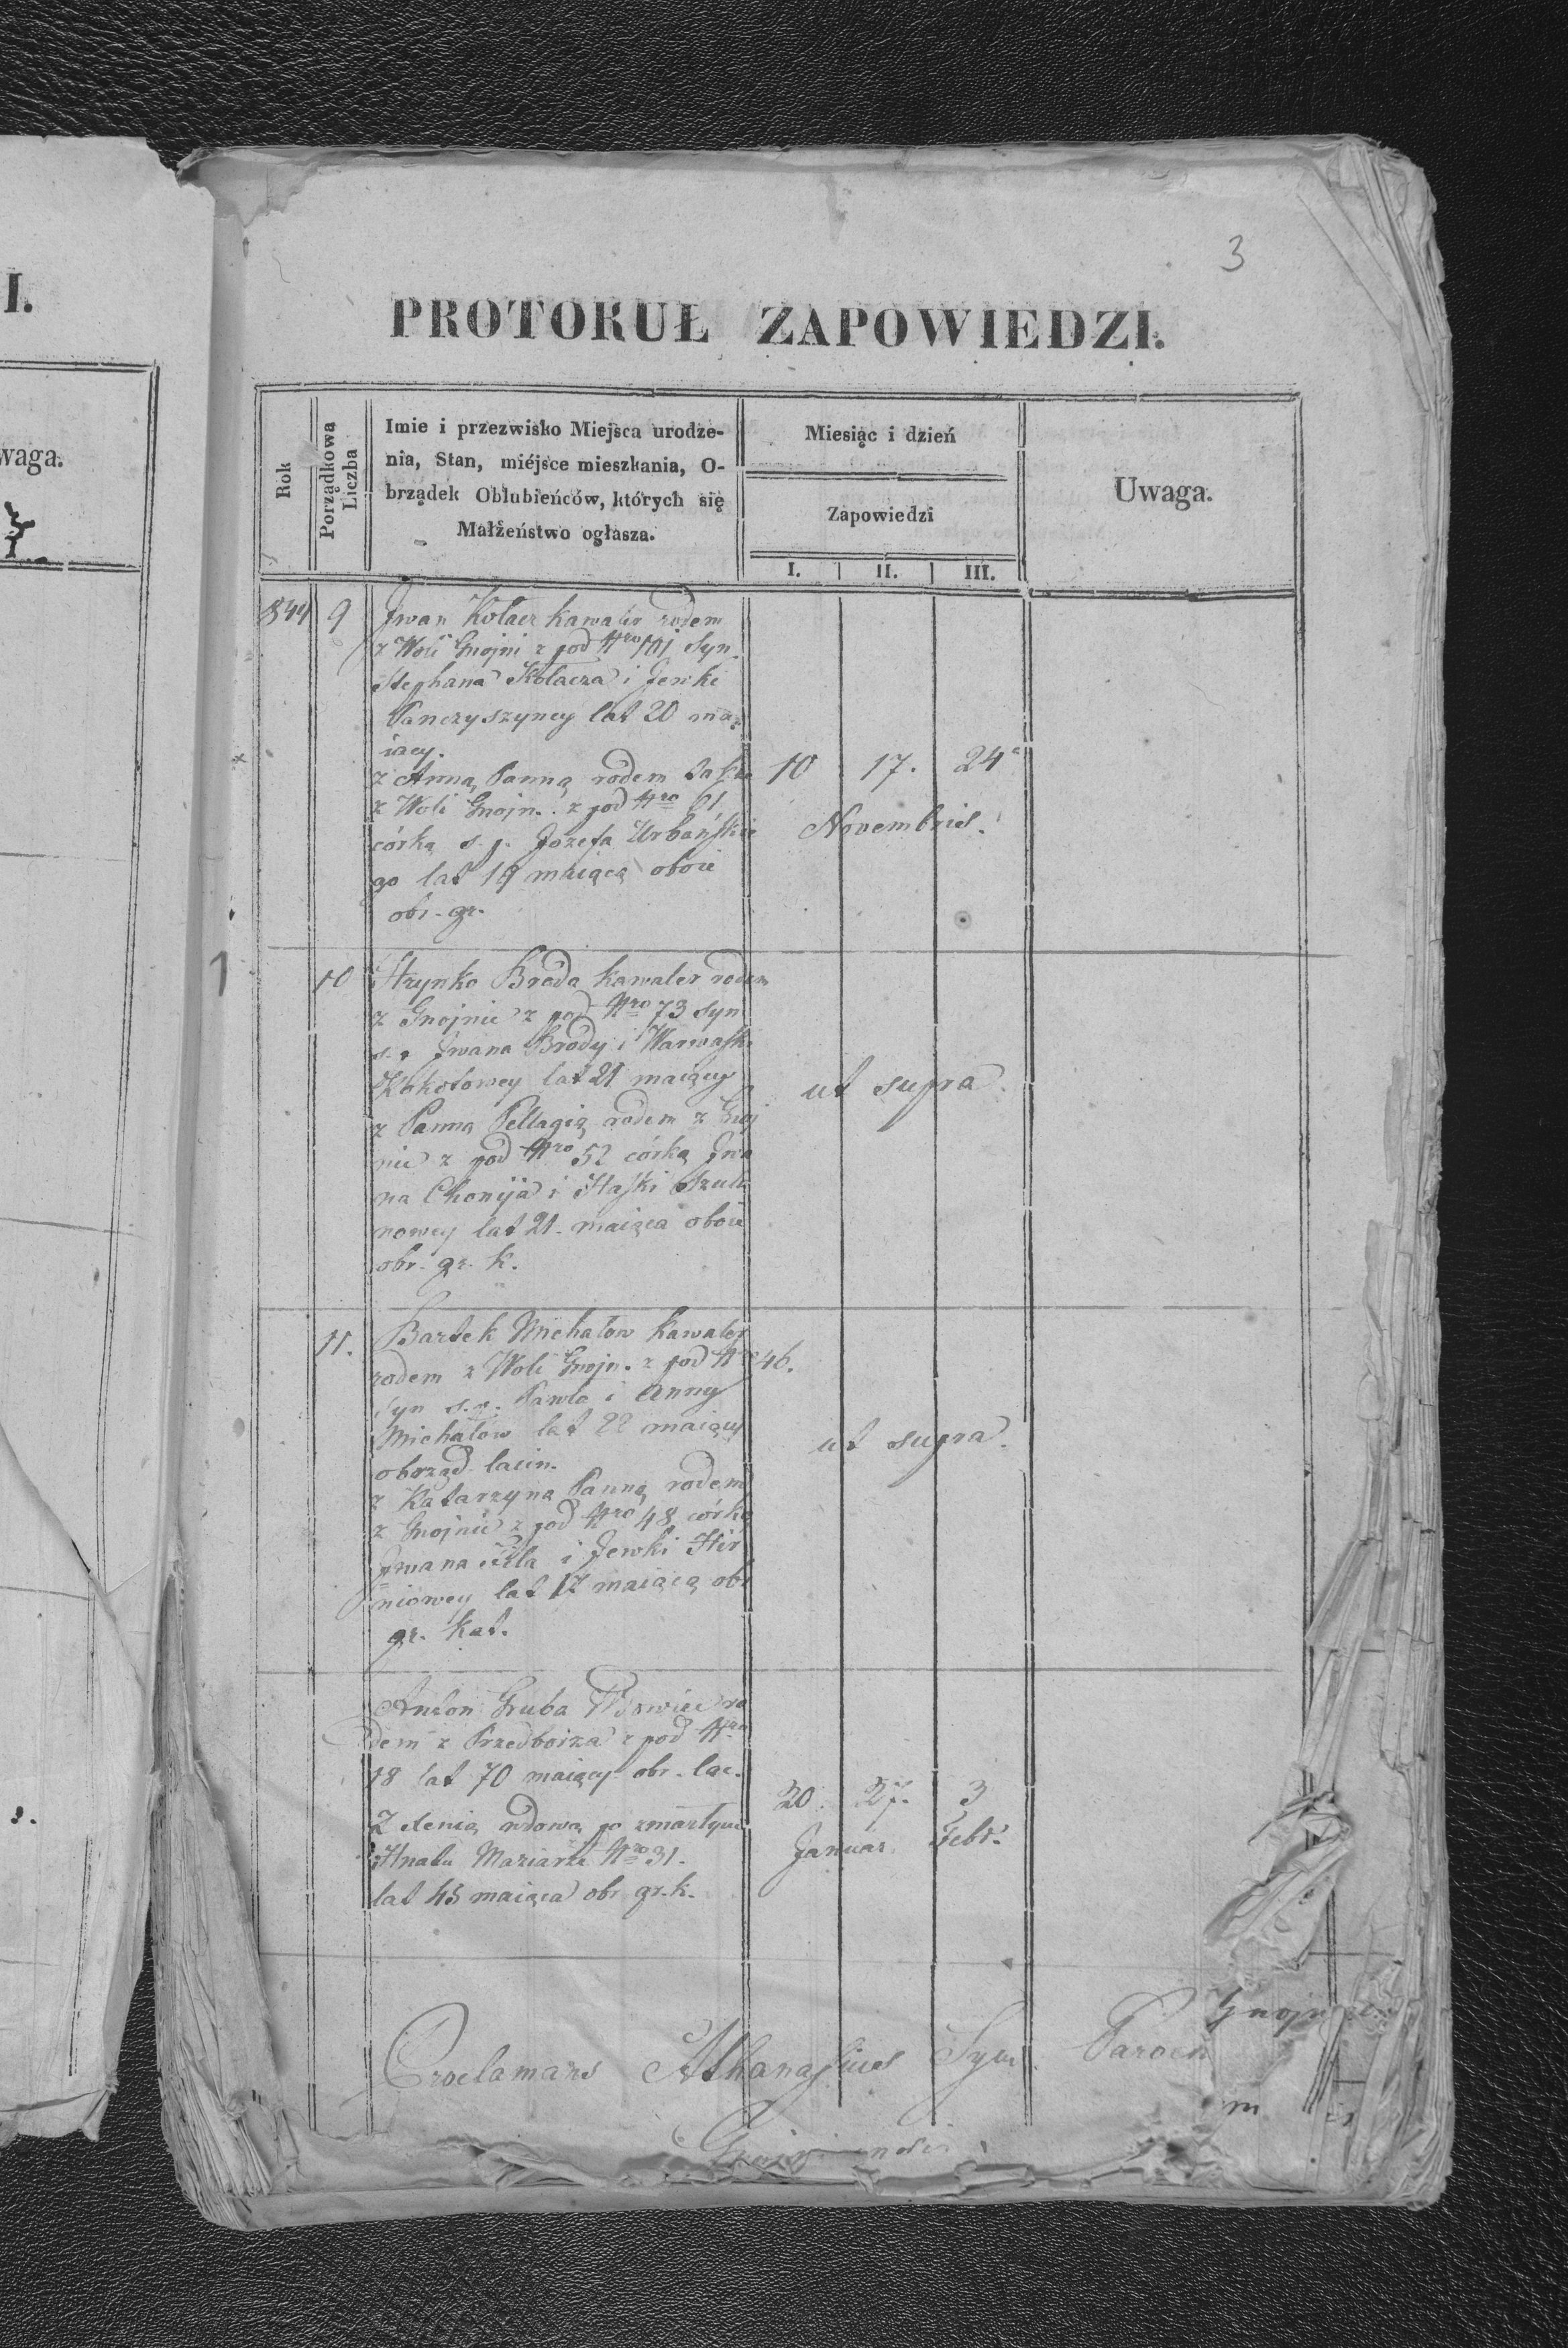 3
I.
PROTOKUŁ ZAPOWIEDZI.
waga.
Rok
Porządkowa
Liczba
Imie i przezwisko Miejsca urodze-
nia, Stan, miéjsce mieszkania, O-
brządek Oblubieńców, których się
Małżeństwo ogłasza.
Miesiąc i dzień
Zapowiedzi
I. II. III.
Uwaga.
844 9 Jwan Kołacz kawaler rodem
z Woli Gnojni z pod Nro 101 Syn
Stephana Kołacza i Jewki
Panczyszyney lat 20 ma-
iący.
z Anną Panną rodem 10 17. 24
z Woli Gnojn. z pod Nro 61
córką s. p. Jozefa Urbańskie Novembris.
go lat 19 maiącą oboie
obr. gr.
1
10 Hrynko Broda kawaler rodem
z Gnojnic z pod Nro 73 syn
s. p Jwana Brody i Warwaski
Kokotowey lat 21 maiący ut supra.
z Panną Pellagią rodem z Gnoj
nic z pod Nro 52 córką Jwa
na Chomja i Naski
nowey lat 21. maiąca oboie
obr. gr. k.
11. Bartek Michałow Kawaler
rodem z Woli Gnojn. z pod Nro 46.
Syn s. p. Pawła i Anny
Michałow lat 22 maiący ut supra.
obrząd. lacin.
z Katarzyną Panną rodem
z Gnojnic z pod Nro 48 córką
Jwana i Jewki Hir
niowey lat 17 maiącą obr
gr. kat.
Anton Gruba Wdowiec ro
dem z Przedborza z pod Nro
18 lat 70 maiący obr. lac. 20. 27. 3
Z Xenią wdową po zmarłym Januar Febr.
Hnatu Maziarza Nro 31.
lat 45 maiąca obr gr. k.
Proclamans Athanasius Paroch